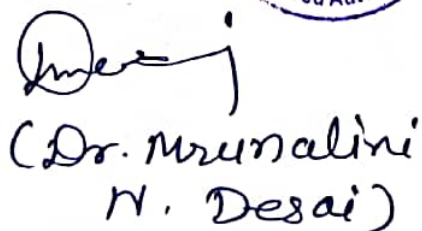 (Dr. Mrunalini
N. Desai)